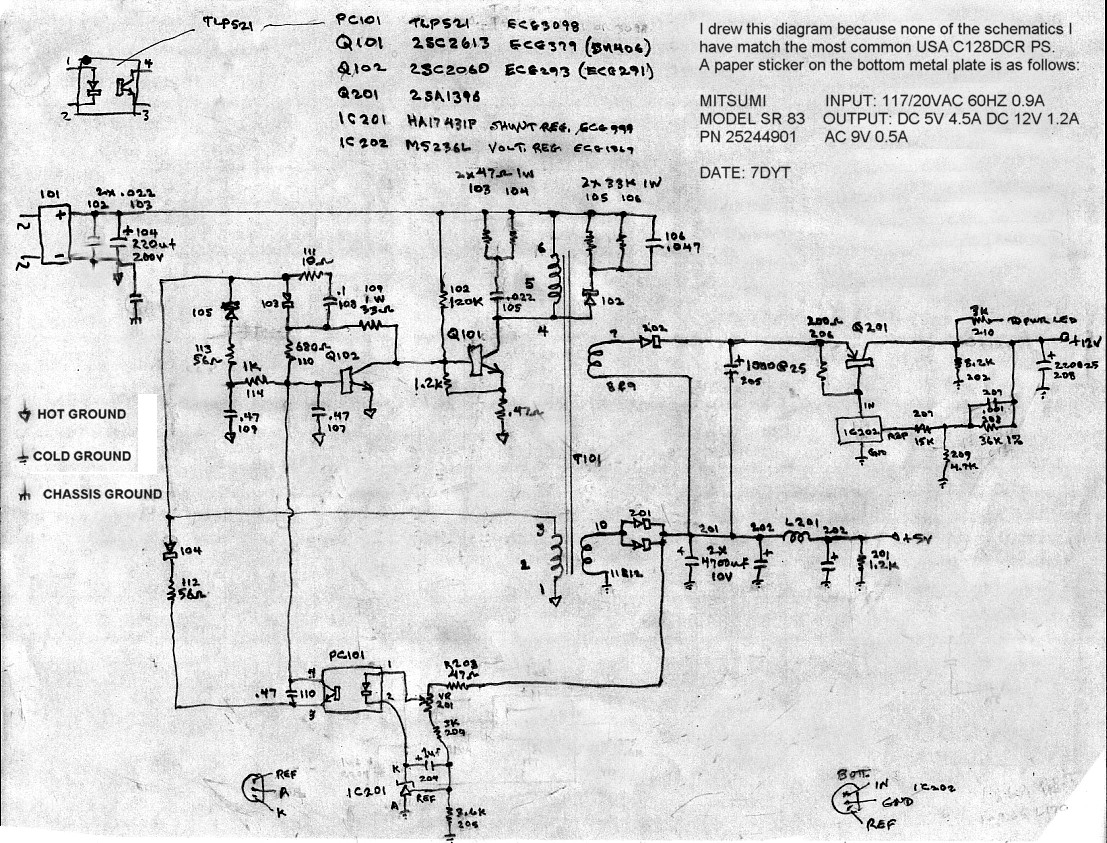 TLP521
PC101 TLP521 ECG3098
Q101 2SC2613 ECG379 (BU406)
Q102 2SC2060 ECG293 (ECG291)
Q201 2SA1396
IC201 HA17431P SHUNT REG. ECG999
IC202 M5236L VOLT. REG ECG1869
1 4
2 3
I drew this diagram because none of the schematics I
have match the most common USA C128DCR PS.
A paper sticker on the bottom metal plate is as follows:
MITSUMI INPUT: 117/20VAC 60HZ 0.9A
MODEL SR 83 OUTPUT: DC 5V 4.5A DC 12V 1.2A
PN 25244901 AC 9V 0.5A
DATE: 7DYT
101
2x .022
102 103
+ 104
220uf
200V
2x47Ω 1W
103 104
2x 33K 1W
105 106
106
.0047
111
10Ω
.1
108
109
1W
33Ω
102
120K
.022
105
6
5
4
102
105
103
113
56Ω
680Ω
110
Q102
Q101
1K
114
1.2K
.47Ω
.47
109
.47
107
7
202
8&9
+ 1000@25
205
200Ω
206
Q201
3K
210
TO PWR LED
+12V
8.2K
202
220@25
208
207
.001
208
36K 1%
IN
IC202
REF
GND
207
15K
209
4.7K
HOT GROUND
COLD GROUND
CHASSIS GROUND
T101
3
2
1
10
201
11&12
201
2x
4700uf
10V
202
L201
202
+5V
201
1.2K
104
112
56Ω
PC101
4
3
1
2
.47
110
R208
47Ω
VR
201
3K
209
+1uf
209
K
IC201
A
REF
205
REF
A
K
BOTT.
IN
IC202
GND
REF